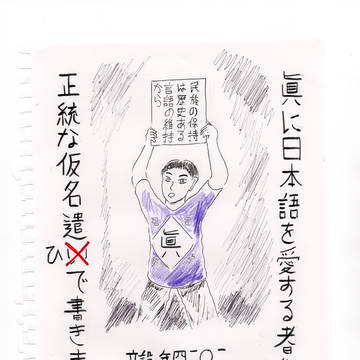 眞に日本語を愛する者
民族の保持
は歴史ある
言語の維持
から
眞
正統な仮名遣いで書きま
ひ
二〇二四年設立